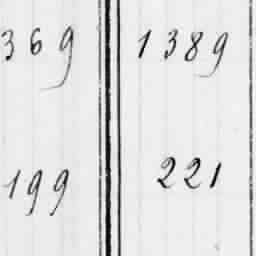 369 1389
199 221